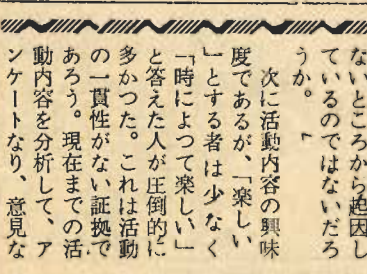 ないところから起因し
ているのではないだろ
うか。
次に活動内容の興味
度であるが、「楽しい
」とする者は少なく
「時によつて楽しい」
と答えた人が圧倒的に
多かつた。これは活動
の一貫性がない証拠で
あろう。現在までの活
動内容を分析して、ア
ンケートなり、意見な